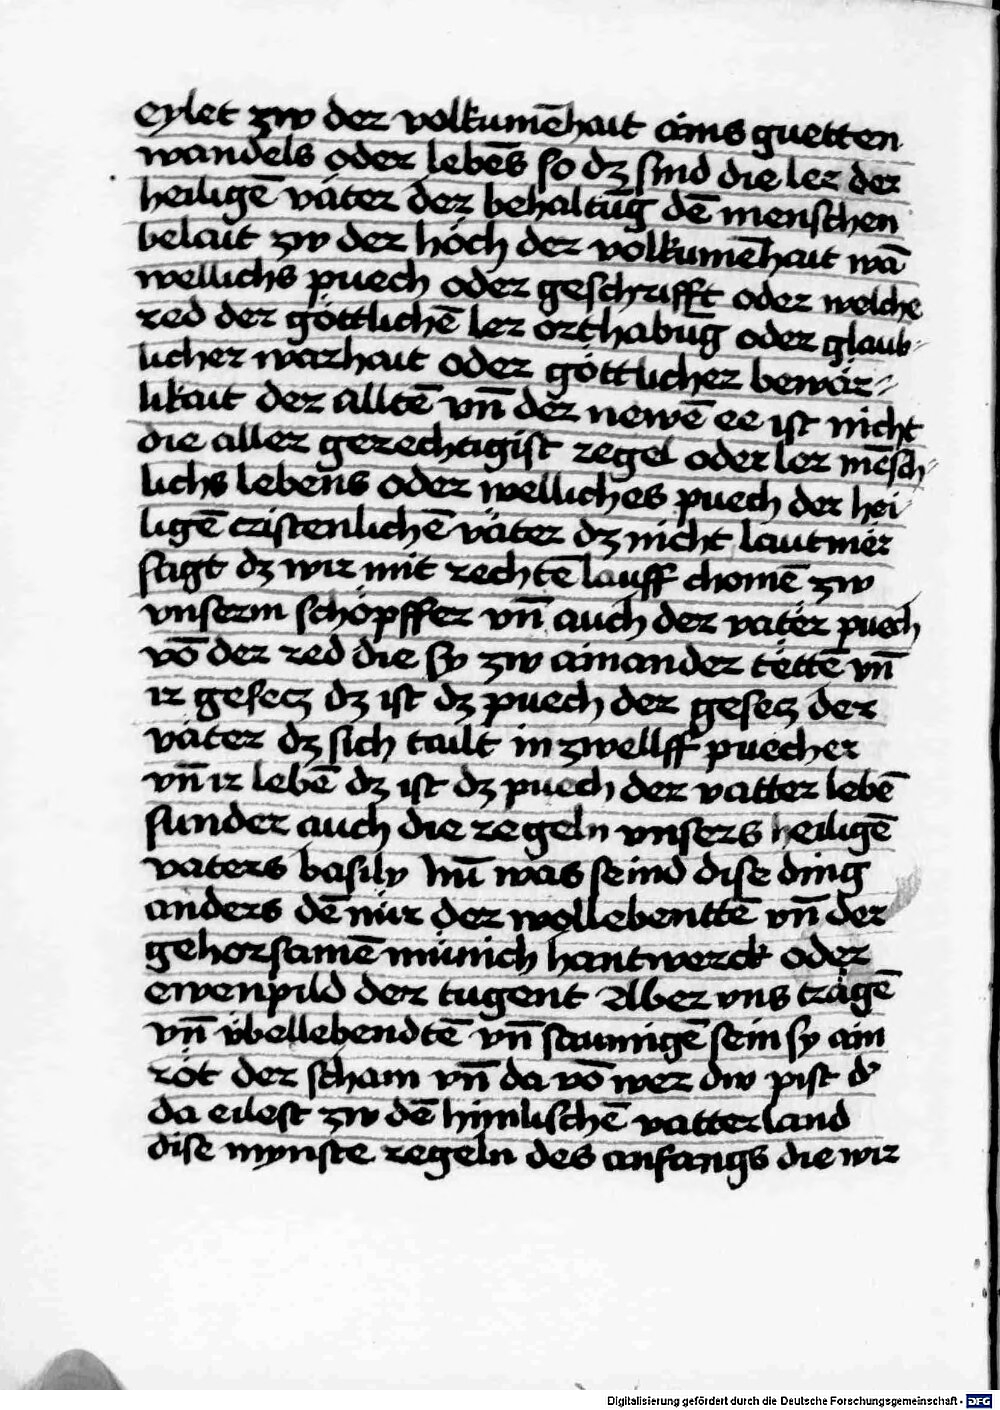 eylet zw der volkumēhait ains guetten
wandels oder lebēs so dz sind die ler der
heiligē väter der behaltūg dē menschen
belait zw der höch der volkumēhait wā
wellichs puech oder geschrifft oder welche
red der göttlichē ler orthabūg oder glaub-
licher warhait oder göttlicher bewär-
likait der alltē vn̄ der newē ee ist nicht
die aller gerechtigist regel oder ler mēsch-
lichs lebens oder welliches puech der hei
ligē cristenlichē väter dz nicht lautmer
sagt dz wir mit rechtē lauff chomē zw
vnserm schöpffer vn̄ auch der väter puech
vō der red die sy zw ainander tettē vn̄
ir gesecz dz ist dz puech der gesecz der
väter dz sich tailt in zwellff puecher
vn̄ ir lebē dz ist dz puech der vatter lebē
sunder auch die regeln vnsers heiligē
vaters basily Nū was seind dise ding
anders dē nür der wollebenttē vn̄ der
gehorsamē münich hantwerck oder
ewenpild der tugent Aber vns trägē
vn̄ übellebendtē vn̄ saumigē sein sy ain
röt der scham vn̄ da vō wer diw pist d'
da eilest zw dē himlischē vatterland
dise mynste regeln des anfangs die wir
Digitalisierung gefördert durch die Deutsche Forschungsgemeinschaft - DFG